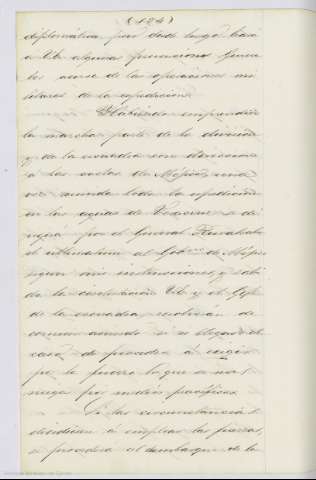 (124)
diplomática pues desde luego hará
a Vd. algunas prevenciones genera
les acerca de las operaciones mi
litares de la expedición.
Habiendo emprendido
la marcha parte de la división
y de la escuadra con dirección
á las costas de Méjico, una
vez reunida toda la expedición
en las aguas de Veracruz, se di
rigirá por el General Rubalcaba
el ultimatum al Gobno. de Méjico
segun sus instrucciones, y sali
da la contestación Vd. y el Gefe
de la escuadra resolverán de
comun acuerdo si es llegado el
caso de proceder á exigir
por la fuerza lo que se nos
niega por medios pacíficos.
Si las circunstancias
decidieran á emplear la fuerza,
se procederá al desembarque de la